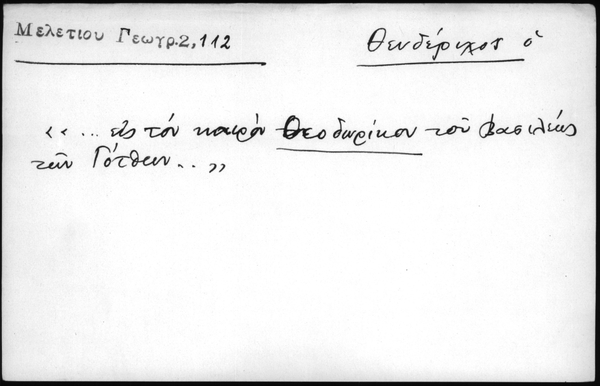 Μελετίου Γεωγρ.2,112
Θευδέριχος ὁ
«... εἰς τόν καιρόν Θεοδωρίκου τοῦ βασιλέως
τῶν Γότθων...»